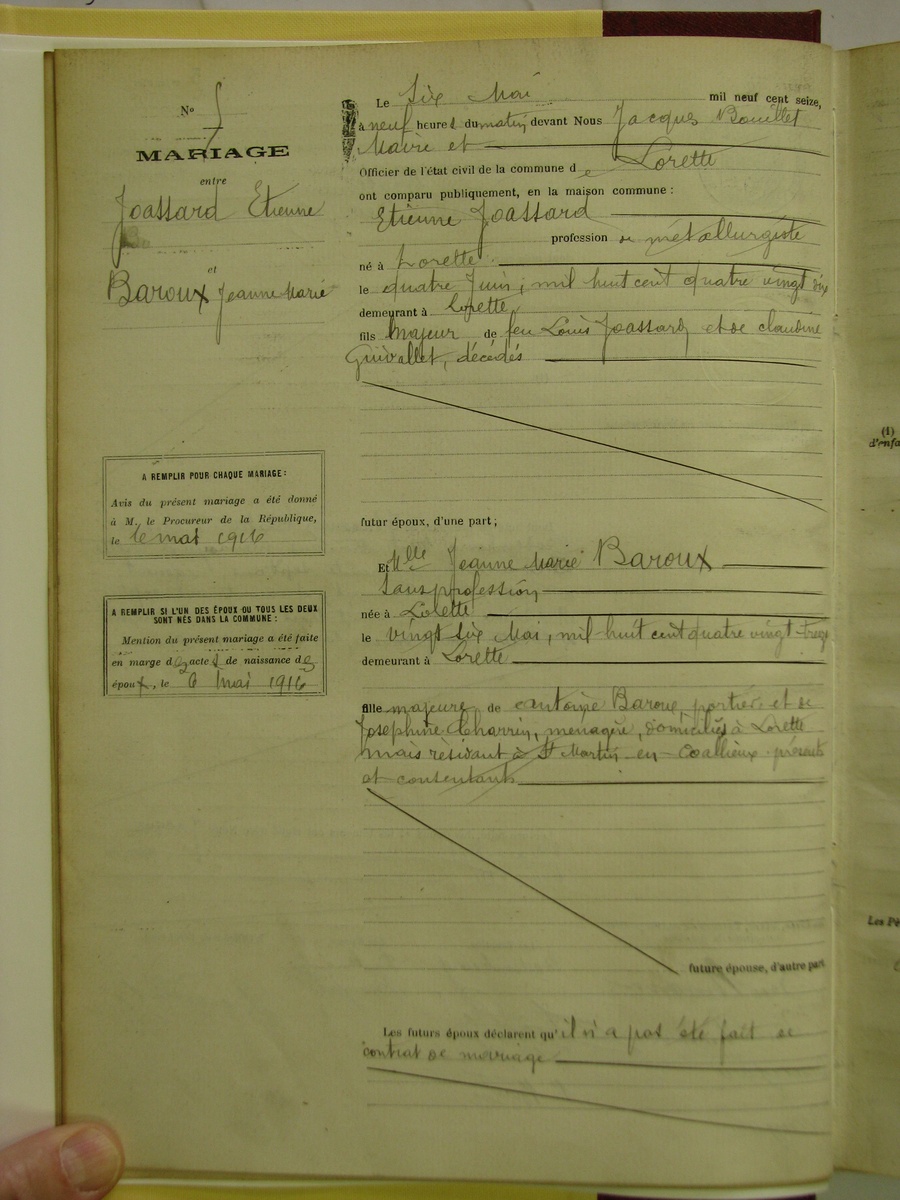 No 5
MARIAGE
entre
Joassard Etienne
et
Baroux Jeanne Marie
A REMPLIR POUR CHAQUE MARIAGE:
Avis du présent mariage a été donné
à M. le Procureur de la République,
le 6 mai 1916
A REMPLIR SI L'UN DES ÉPOUX OU TOUS LES DEUX
SONT NÉS DANS LA COMMUNE:
Mention du présent mariage a été faite
en marge des actes de naissance des
époux, le 6 mai 1916
Le Six Mai mil neuf cent seize,
à neuf heures du matin devant Nous Jacques Bouillet
Maire et
Officier de l'état civil de la commune de Lorette
ont comparu publiquement, en la maison commune:
Etienne Joassard
profession de métallurgiste
né à Lorette
le quatre Juin, mil huit cent quatre vingt dix
demeurant à Lorette
fils majeur de feu Louis Joassard et de claudine
Guivallet, décédés
futur époux, d'une part;
Et Mlle Jeanne Marie Baroux
Sans profession
née à Lorette
le vingt six Mai, mil huit cent quatre vingt treize
demeurant à Lorette
fille majeure de antoine Baroux, portier et de
Josephine Charrin, ménagère, domiciliés à Lorette
mais residant à St Martin en Coallieux présents
et consentants
future épouse, d'autre part
Les futurs époux déclarent qu'il n'a pas été fait de
contrat de mariage
(1)
d'enfa
Les Pé